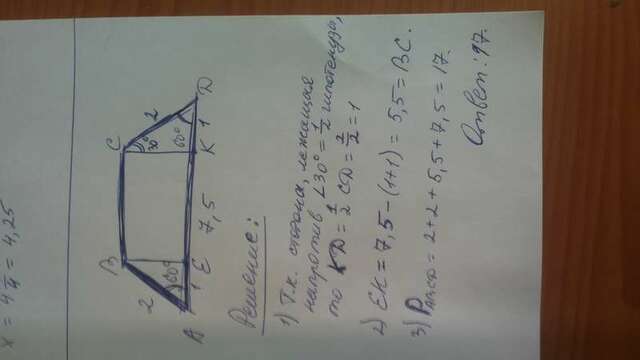 x = 4 1/4 = 4,25
B C
2 2
60° 30° 60°
A 1 E 7,5 K 1 D
Решение:
1) Т.к. сторона, лежащая
напротив ∠30° = 1/2 гипотенузы,
то KD = 1/2 CD = 2/2 = 1
2) EK = 7,5 - (1+1) = 5,5 = BC.
3) PABCD = 2 + 2 + 5,5 + 7,5 = 17.
Ответ: 17.